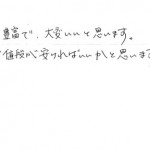 豊富で、大変いいと思います。
値段が安ければいいかと思いま